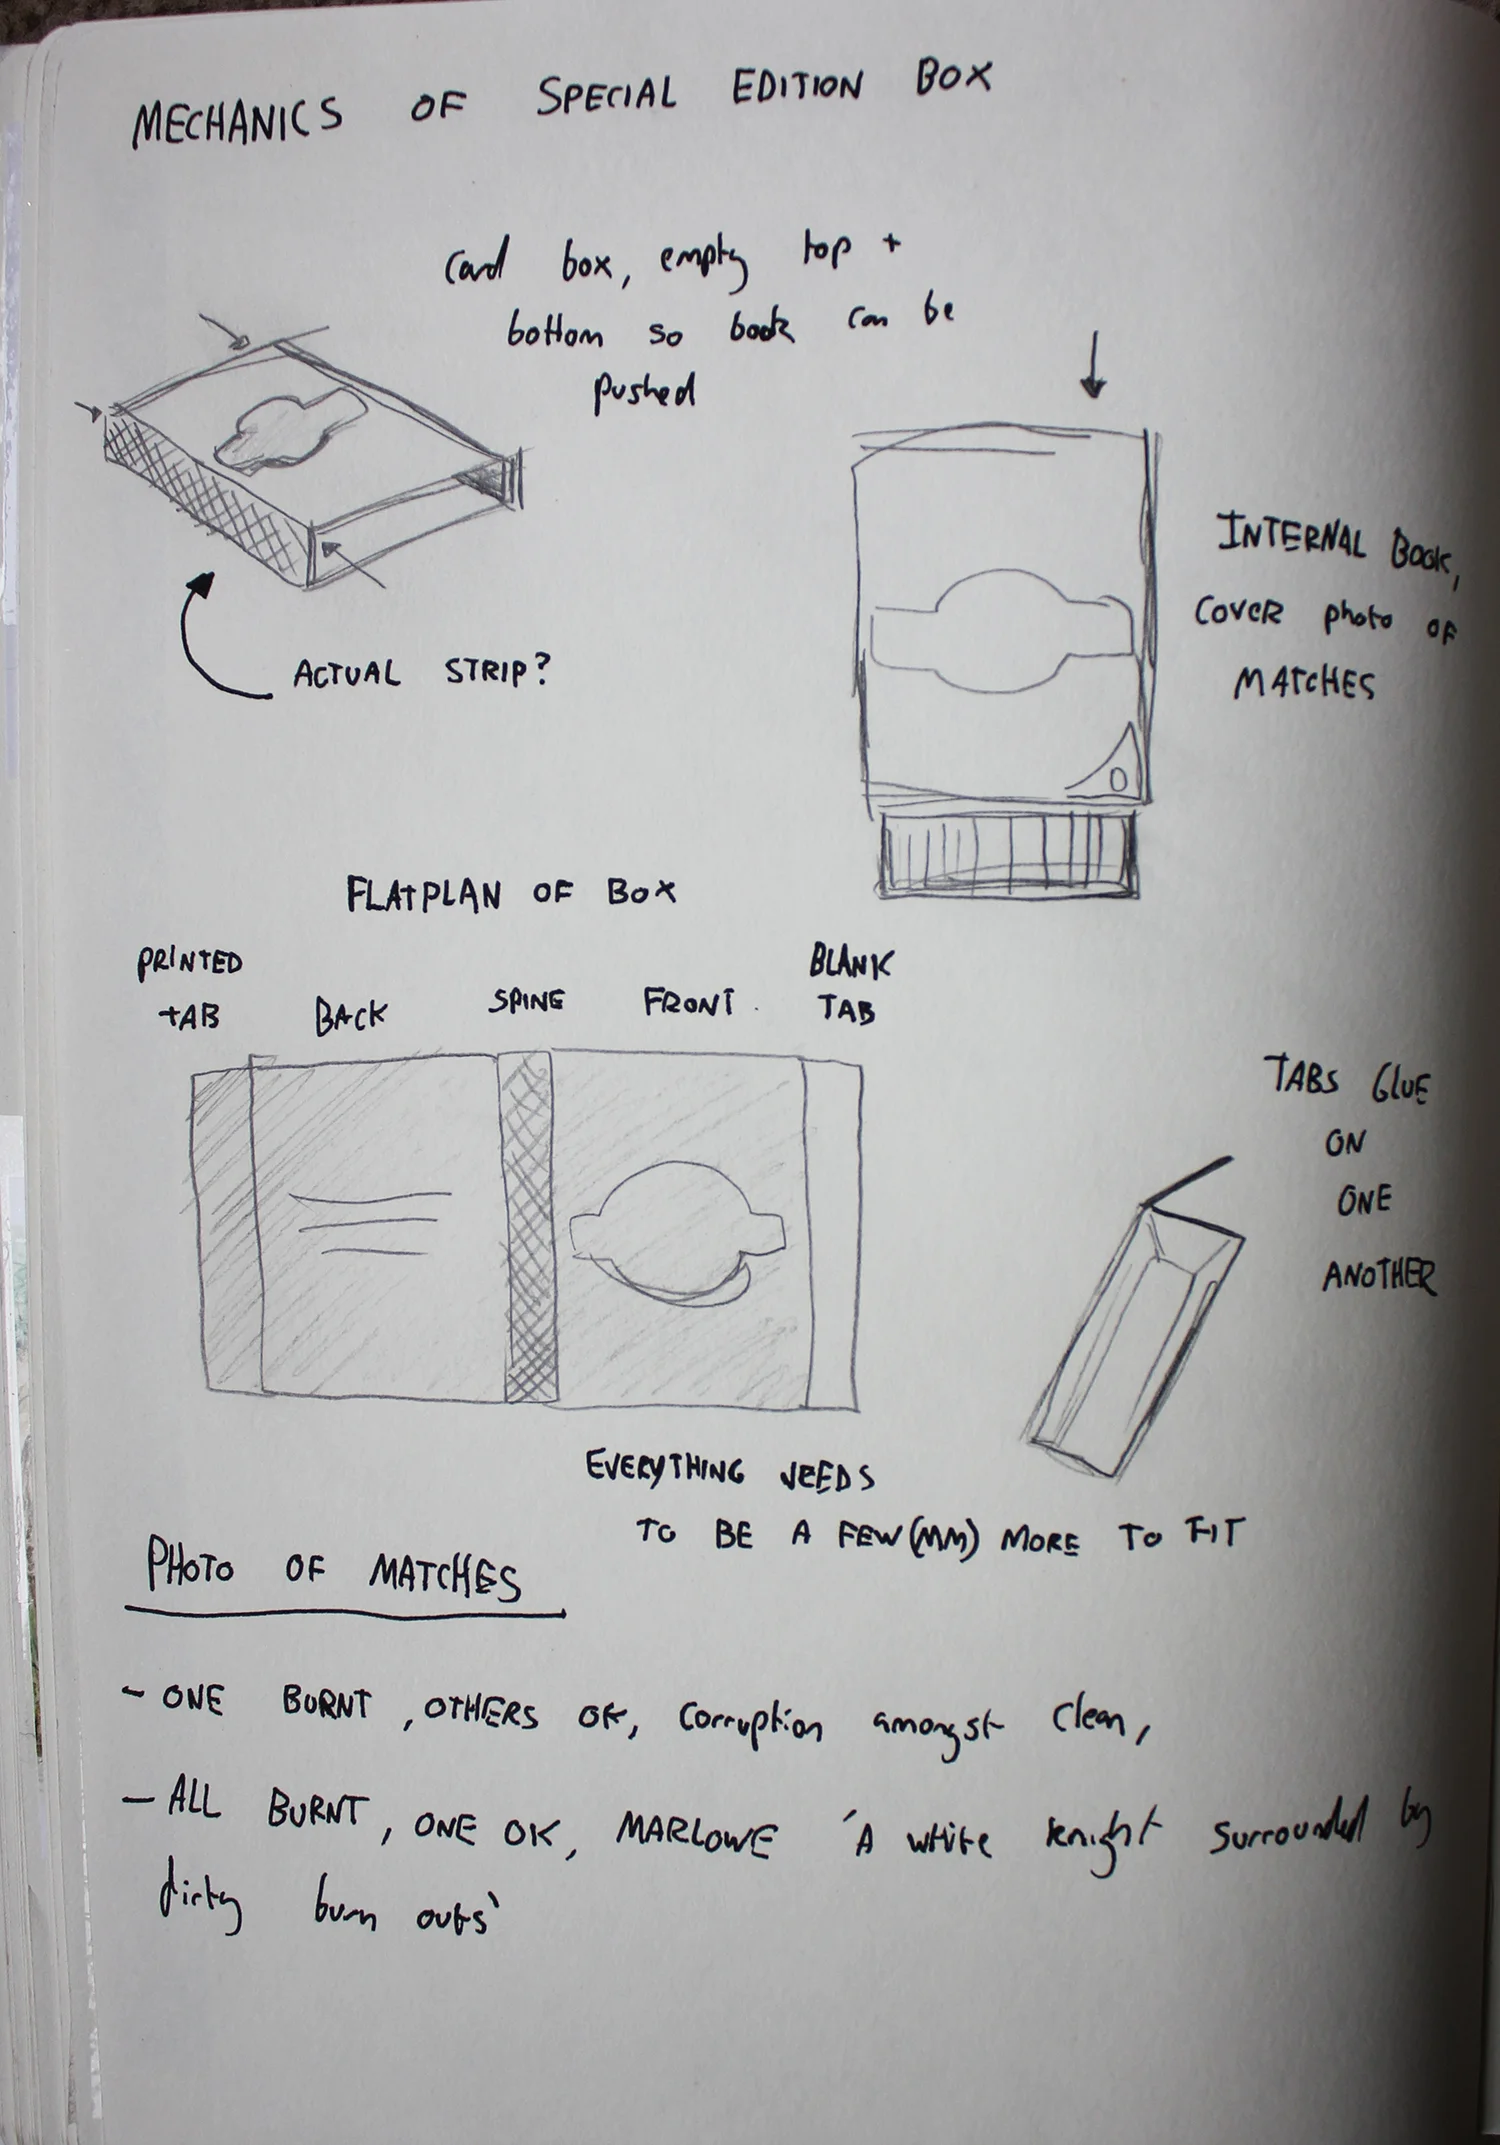 MECHANICS OF SPECIAL EDITION BOX
Card box, empty top +
bottom so book can be
pushed
INTERNAL Book,
COVER photo OF
MATCHES
ACTUAL STRIP?
FLATPLAN OF BOX
PRINTED
TAB
BACK
SPINE
FRONT
BLANK
TAB
TABS GLUE
ON
ONE
ANOTHER
EVERYTHING NEEDS
TO BE A FEW (MM) MORE TO FIT
PHOTO OF MATCHES
- ONE BURNT, OTHERS OK, Corruption amongst Clean,
- ALL BURNT, ONE OK, MARLOWE 'A white knight surrounded by
dirty burn outs'